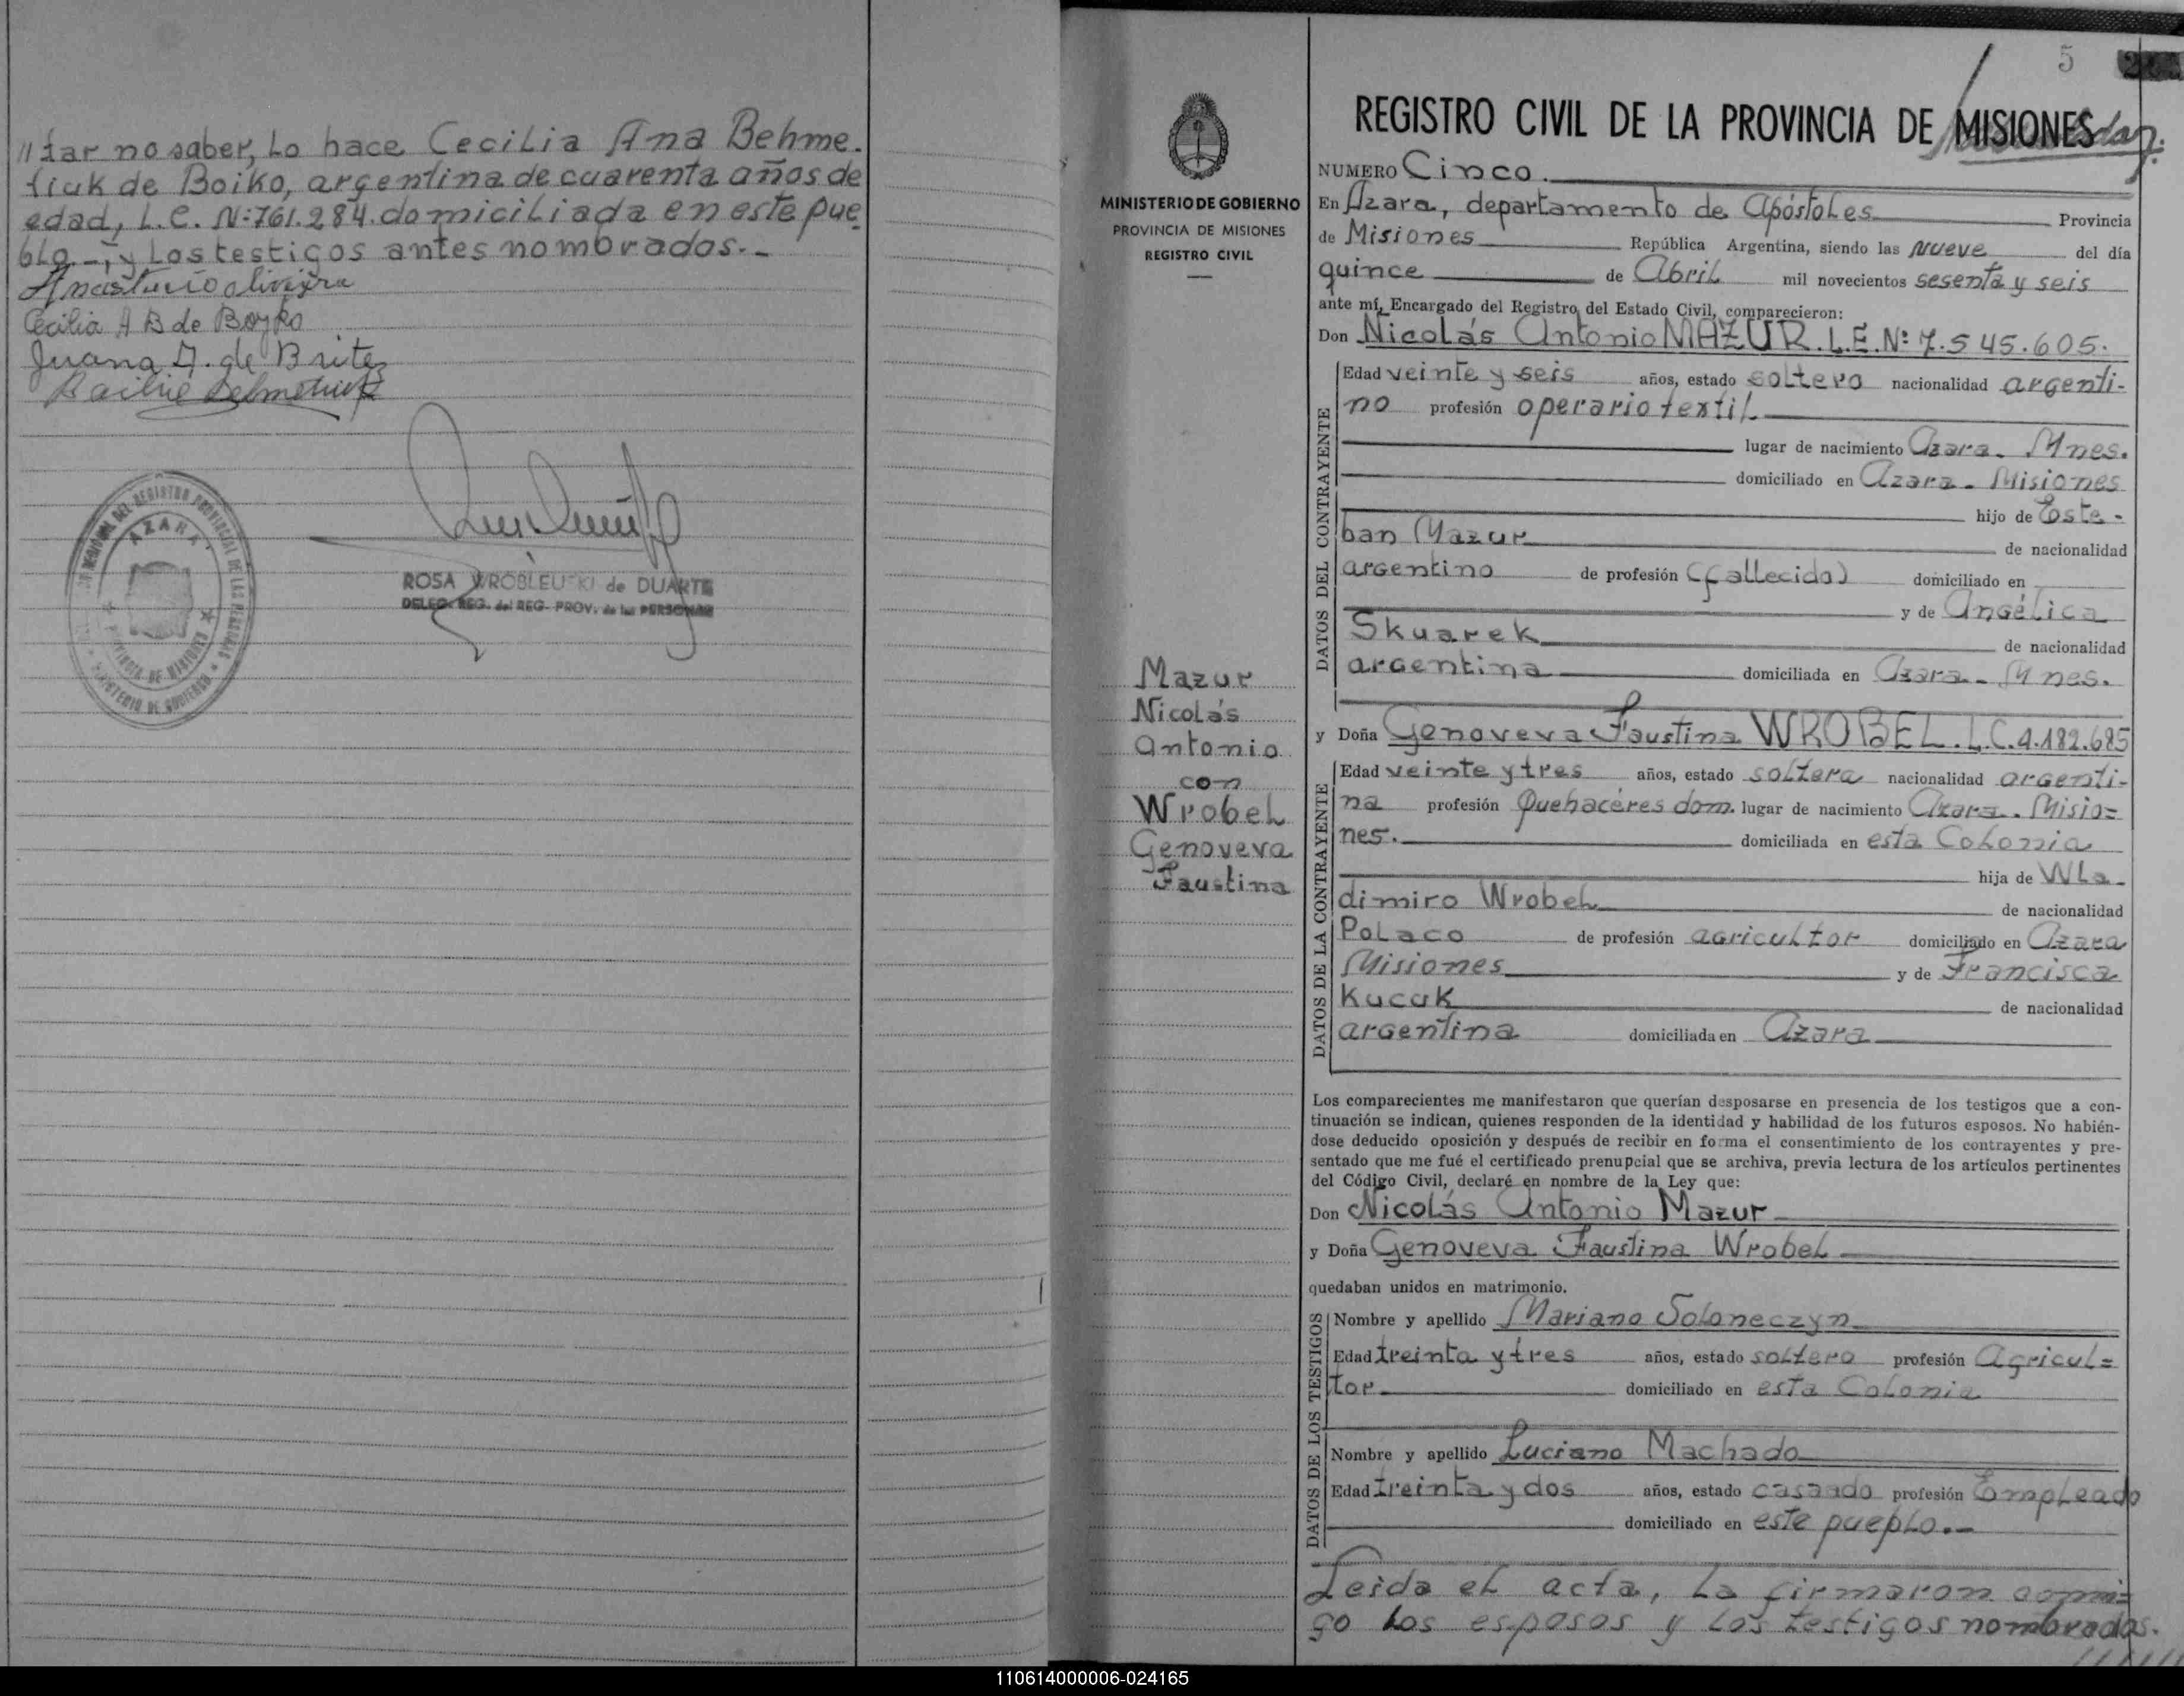 //tar no saber, Lo hace Cecilia Ana Behme-
tiuk de Boiko, argentina de cuarenta años de
edad, L.C. Nº:761.284. domiciliada en este pue-
blo.-, y los testigos antes nombrados.-
Anastacio oliveira
Cecilia A B de Boyko
Juana D. de Britez
AZARA
PROVINCIA DE MISIONES
MINISTERIO DE GOBIERNO
ROSA WROBLEUSKI de DUARTE
DELEG. REG. del REG. PROV. de las PERSONAS
5
MINISTERIO DE GOBIERNO
PROVINCIA DE MISIONES
REGISTRO CIVIL
Mazur
Nicolás
Antonio
con
Wrobel
Genoveva
Faustina
REGISTRO CIVIL DE LA PROVINCIA DE MISIONES
NUMERO Cinco.
En Azara, departamento de Apóstoles Provincia
de Misiones República Argentina, siendo las nueve del día
quince de Abril mil novecientos sesenta y seis
ante mí, Encargado del Registro del Estado Civil, comparecieron:
Don Nicolás Antonio MAZUR. L.E. Nº: 7.545.605.
DATOS DEL CONTRAYENTE
Edad veinte y seis años, estado soltero nacionalidad argenti-
no profesión operario textil
lugar de nacimiento Azara. Mnes.
domiciliado en Azara - Misiones
hijo de Este-
ban Mazur de nacionalidad
argentino de profesión (fallecido) domiciliado en
y de Angélica
Skuarek de nacionalidad
argentina domiciliada en Azara - Mnes.
y Doña Genoveva Faustina WROBEL. L.C. 4.182.685
DATOS DE LA CONTRAYENTE
Edad veinte y tres años, estado soltera nacionalidad argenti-
na profesión Quehacéres dom. lugar de nacimiento Azara. Misio=
nes. domiciliada en esta Colonia
hija de Wla-
dimiro Wrobel de nacionalidad
Polaco de profesión agricultor domiciliado en Azara
Misiones y de Francisca
Kucuk de nacionalidad
argentina domiciliada en Azara
Los comparecientes me manifestaron que querían desposarse en presencia de los testigos que a con-
tinuación se indican, quienes responden de la identidad y habilidad de los futuros esposos. No habién-
dose deducido oposición y después de recibir en forma el consentimiento de los contrayentes y pre-
sentado que me fué el certificado prenupcial que se archiva, previa lectura de los artículos pertinentes
del Código Civil, declaré en nombre de la Ley que:
Don Nicolás Antonio Mazur
y Doña Genoveva Faustina Wrobel
quedaban unidos en matrimonio.
DATOS DE LOS TESTIGOS
Nombre y apellido Mariano Soloneczyn
Edad treinta y tres años, estado soltero profesión Agricul=
tor domiciliado en esta Colonia
Nombre y apellido Luciano Machado
Edad treinta y dos años, estado casado profesión Empleado
domiciliado en este pueblo.-
Leida el acta, la firmaron conmi=
go los esposos y los testigos nombrados.
//////
110614000006-024165